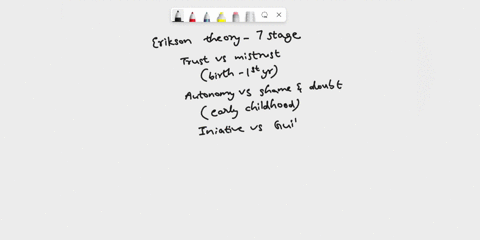 Erikson theory - 7 stage
Trust vs mistrust
(birth - 1st yr)
Autonomy vs shame & doubt
(early childhood)
Iniative vs Gui'